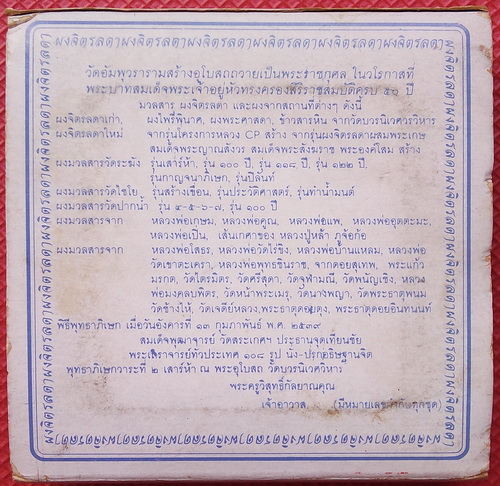 ผงจิตรลดาผงจิตรลดาผงจิตรลดาผงจิตรลดาผงจิตรลดาผงจิตรลดา
วัดอัมพวารามสร้างอุโบสถถวายเป็นพระราชกุศล ในวโรกาสที่
พระบาทสมเด็จพระเจ้าอยู่หัวทรงครองสิริราชสมบัติครบ ๕๐ ปี
มวลสาร ผงจิตรลดา และผงจากสถานที่ต่างๆ ดังนี้
ผงจิตรลดาเก่า, ผงไพรีพินาศ, ผงพระศาสดา, ข้าวสารหิน จากวัดบวรนิเวศวรวิหาร
ผงจิตรลดาใหม่ จากรุ่นโครงการหลวง CP สร้าง จากรุ่นผงจิตรลดาผสมพระเกษ
สมเด็จพระญาณสังวร สมเด็จพระสังฆราช พระองค์โสม สร้าง
ผงมวลสารวัดระฆัง รุ่นเสาร์ห้า, รุ่น ๑๐๐ ปี, รุ่น ๑๑๘ ปี, รุ่น ๑๒๒ ปี,
รุ่นกาญจนาภิเษก, รุ่นปิลันท์
ผงมวลสารวัดไชโย, รุ่นสร้างเขื่อน, รุ่นประวัติศาสตร์, รุ่นทำน้ำมนต์
ผงมวลสารวัดปากน้ำ รุ่น ๔-๕-๖-๗, รุ่น ๑๐๐ ปี
ผงมวลสารจาก หลวงพ่อเกษม, หลวงพ่อคูณ, หลวงพ่อแพ, หลวงพ่ออุตตะมะ,
หลวงพ่อเป็น, เส้นเกศาของ หลวงปู่หล้า ภูจ้อก้อ
ผงมวลสารจาก หลวงพ่อโสธร, หลวงพ่อวัดไร่ขิง, หลวงพ่อบ้านแหลม, หลวงพ่อ
วัดเขาตะเครา, หลวงพ่อพุทธชินราช, จากดอยสุเทพ, พระแก้ว
มรกต, วัดไตรมิตร, วัดศรีสุดา, วัดจุฬามณี, วัดพนัญเชิง, หลวง
พ่อมงคลบพิตร, วัดหน้าพระเมรุ, วัดนางพญา, วัดพระธาตุพนม
วัดช้างไห้, วัดเจดีย์หลวง,พระธาตุดอยตุง, พระธาตุดอยอินทนนท์
พิธีพุทธาภิเษก เมื่อวันอังคารที่ ๑๓ กุมภาพันธ์ พ.ศ. ๒๕๓๙
สมเด็จพุฒาจารย์ วัดสระเกศฯ ประธานจุดเทียนชัย
พระเถราจารย์ทั่วประเทศ ๑๐๘ รูป นั่ง-ปรกอธิษฐานจิต
พุทธาภิเษกวาระที่ ๒ เสาร์ห้า ณ พระอุโบสถ วัดบวรนิเวศวิหาร
พระครูวิสุทธิ์กัลยาณคุณ
เจ้าอาวาส (มีหมายเลขกำกับทุกชุด)
ผงจิตรลดาผงจิตรลดาผงจิตรลดาผงจิตรลดาผงจิตรลดาผงจิตรลดา